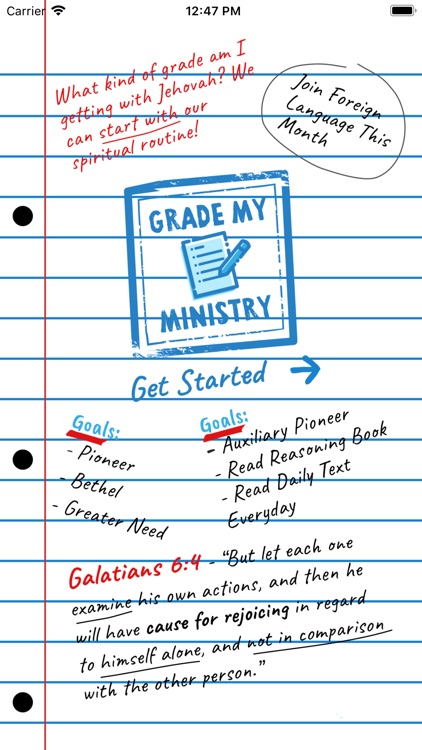 Carrier 12:47 PM
What kind of grade am I
getting with Jehovah? We
can start with our
spiritual routine!
Join Foreign
Language This
Month
GRADE MY
MINISTRY
Get Started
Goals:
- Pioneer
- Bethel
- Greater Need
Goals:
- Auxiliary Pioneer
- Read Reasoning Book
- Read Daily Text
Everyday
Galatians 6:4 - “But let each one
examine his own actions, and then he
will have cause for rejoicing in regard
to himself alone, and not in comparison
with the other person.”